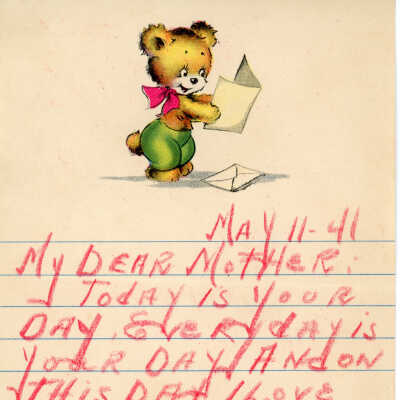 MAY 11-41
My DEAR MOTHER.
Today is your
DAY. Everyday is
your DAY, AND ON
THIS DAY I Love